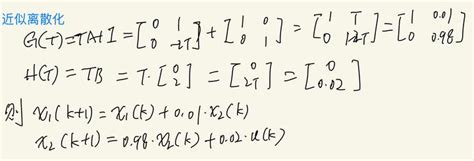 近似离散化
G(T)=TA+I=[0 1; 0 -2T]+[1 0; 0 1]=[1 T; 0 1-2T]=[1 0.01; 0 0.98]
H(T)=TB=T·[0; 2]=[0; 2T]=[0; 0.02]
则 x₁(k+1)=x₁(k)+0.01·x₂(k)
x₂(k+1)=0.98·x₂(k)+0.02·u(k)